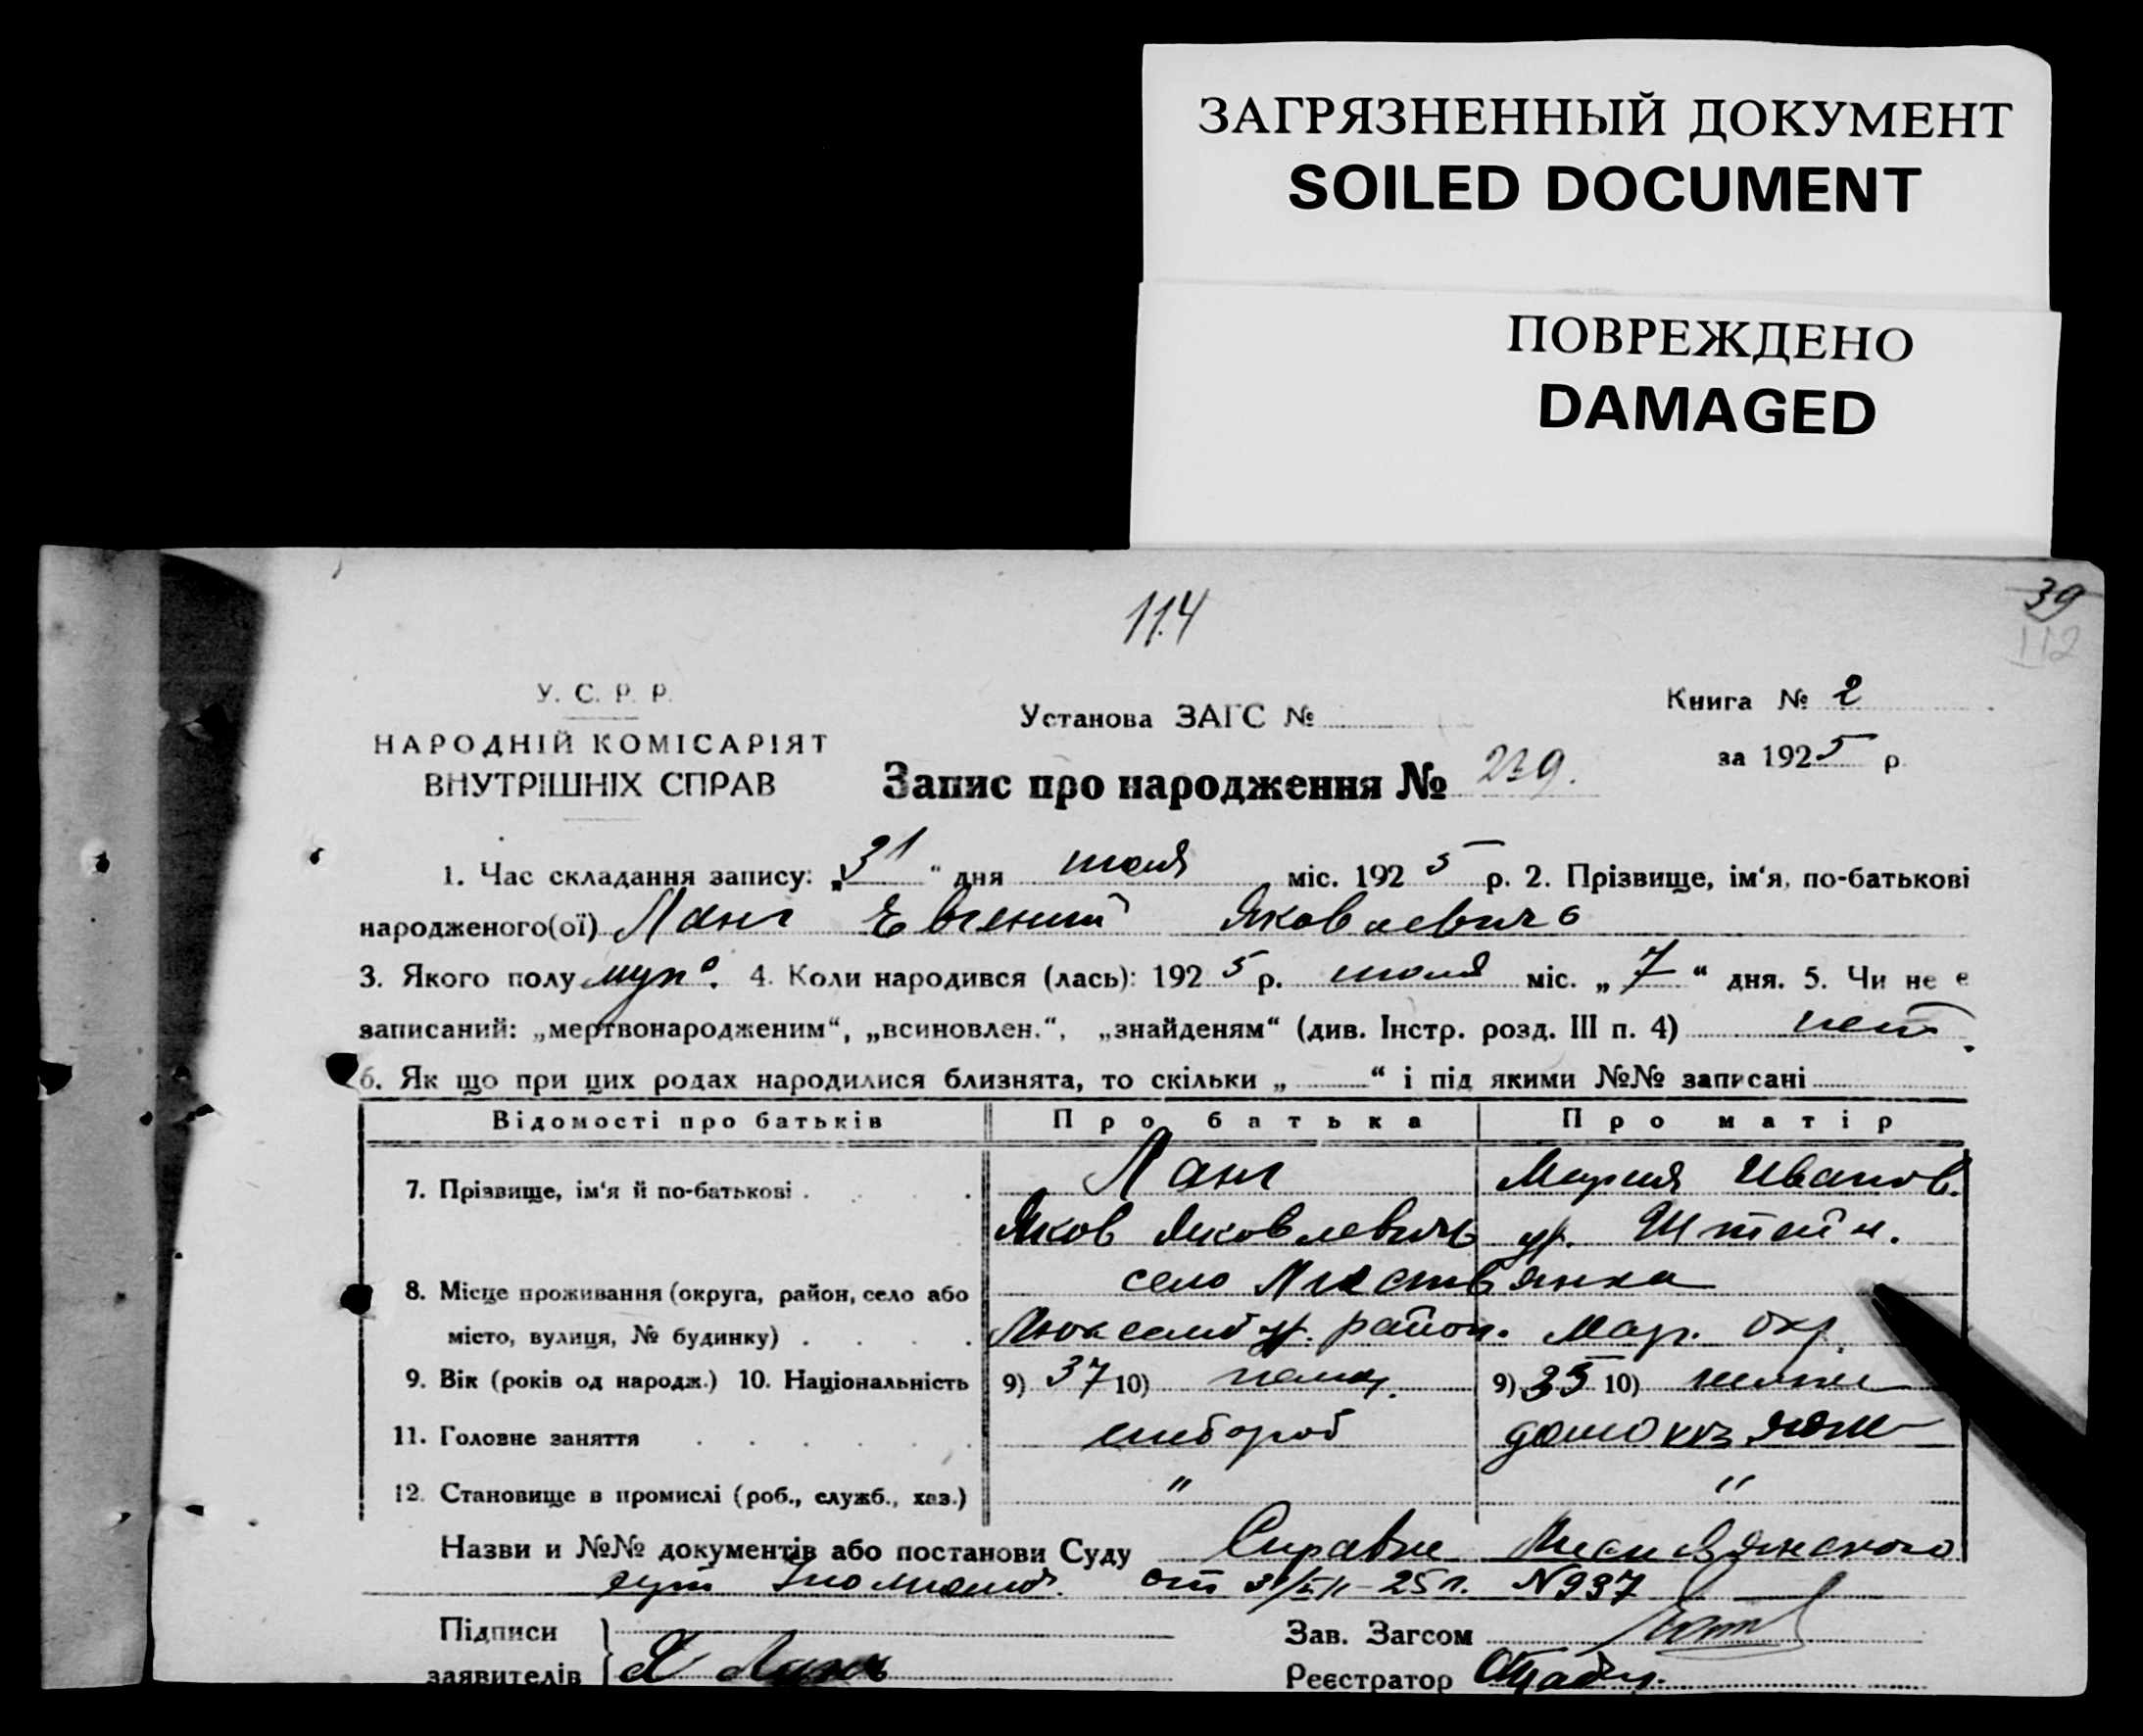 ЗАГРЯЗНЕННЫЙ ДОКУМЕНТ
SOILED DOCUMENT
ПОВРЕЖДЕНО
DAMAGED
39
114
112
У. С. Р. Р.
НАРОДНІЙ КОМІСАРІЯТ
ВНУТРІШНІХ СПРАВ
Установа ЗАГС №
Книга № 2
за 1925 р.
Запис про народження № 239.
1. Час складання запису: „31" дня июля міс. 1925 р. 2. Прізвище, ім'я, по-батькові
народженого(ої) Ланг Евгений Яковлевичь
3. Якого полу муж. 4. Коли народився (лась): 1925 р. июля міс. „7" дня. 5. Чи не є
записаний: „мертвонародженим", „всиновлен.", „знайденям" (див. Інстр. розд. III п. 4) нет
6. Як що при цих родах народилися близнята, то скільки „ " і під якими №№ записані
Відомості про батьків Про батька Про матір
7. Прізвище, ім'я й по-батькові Ланг Мария Иванов.
Яков Яковлевичь ур. Штейн.
8. Місце проживання (округа, район, село або село Листвянка
місто, вулиця, № будинку) Люксембур. район. Мар. Окр.
9. Вік (років од народж.) 10. Національність 9) 37 10) немец. 9) 35 10) немки
11. Головне заняття хлебороб домохозяйк
12. Становище в промислі (роб., служб., хаз.) " "
Назви и №№ документів або постанови Суду Справка
от 31/VII-25 г. N 937
Підписи
заявителів Я Ланг
Зав. Загсом
Реєстратор